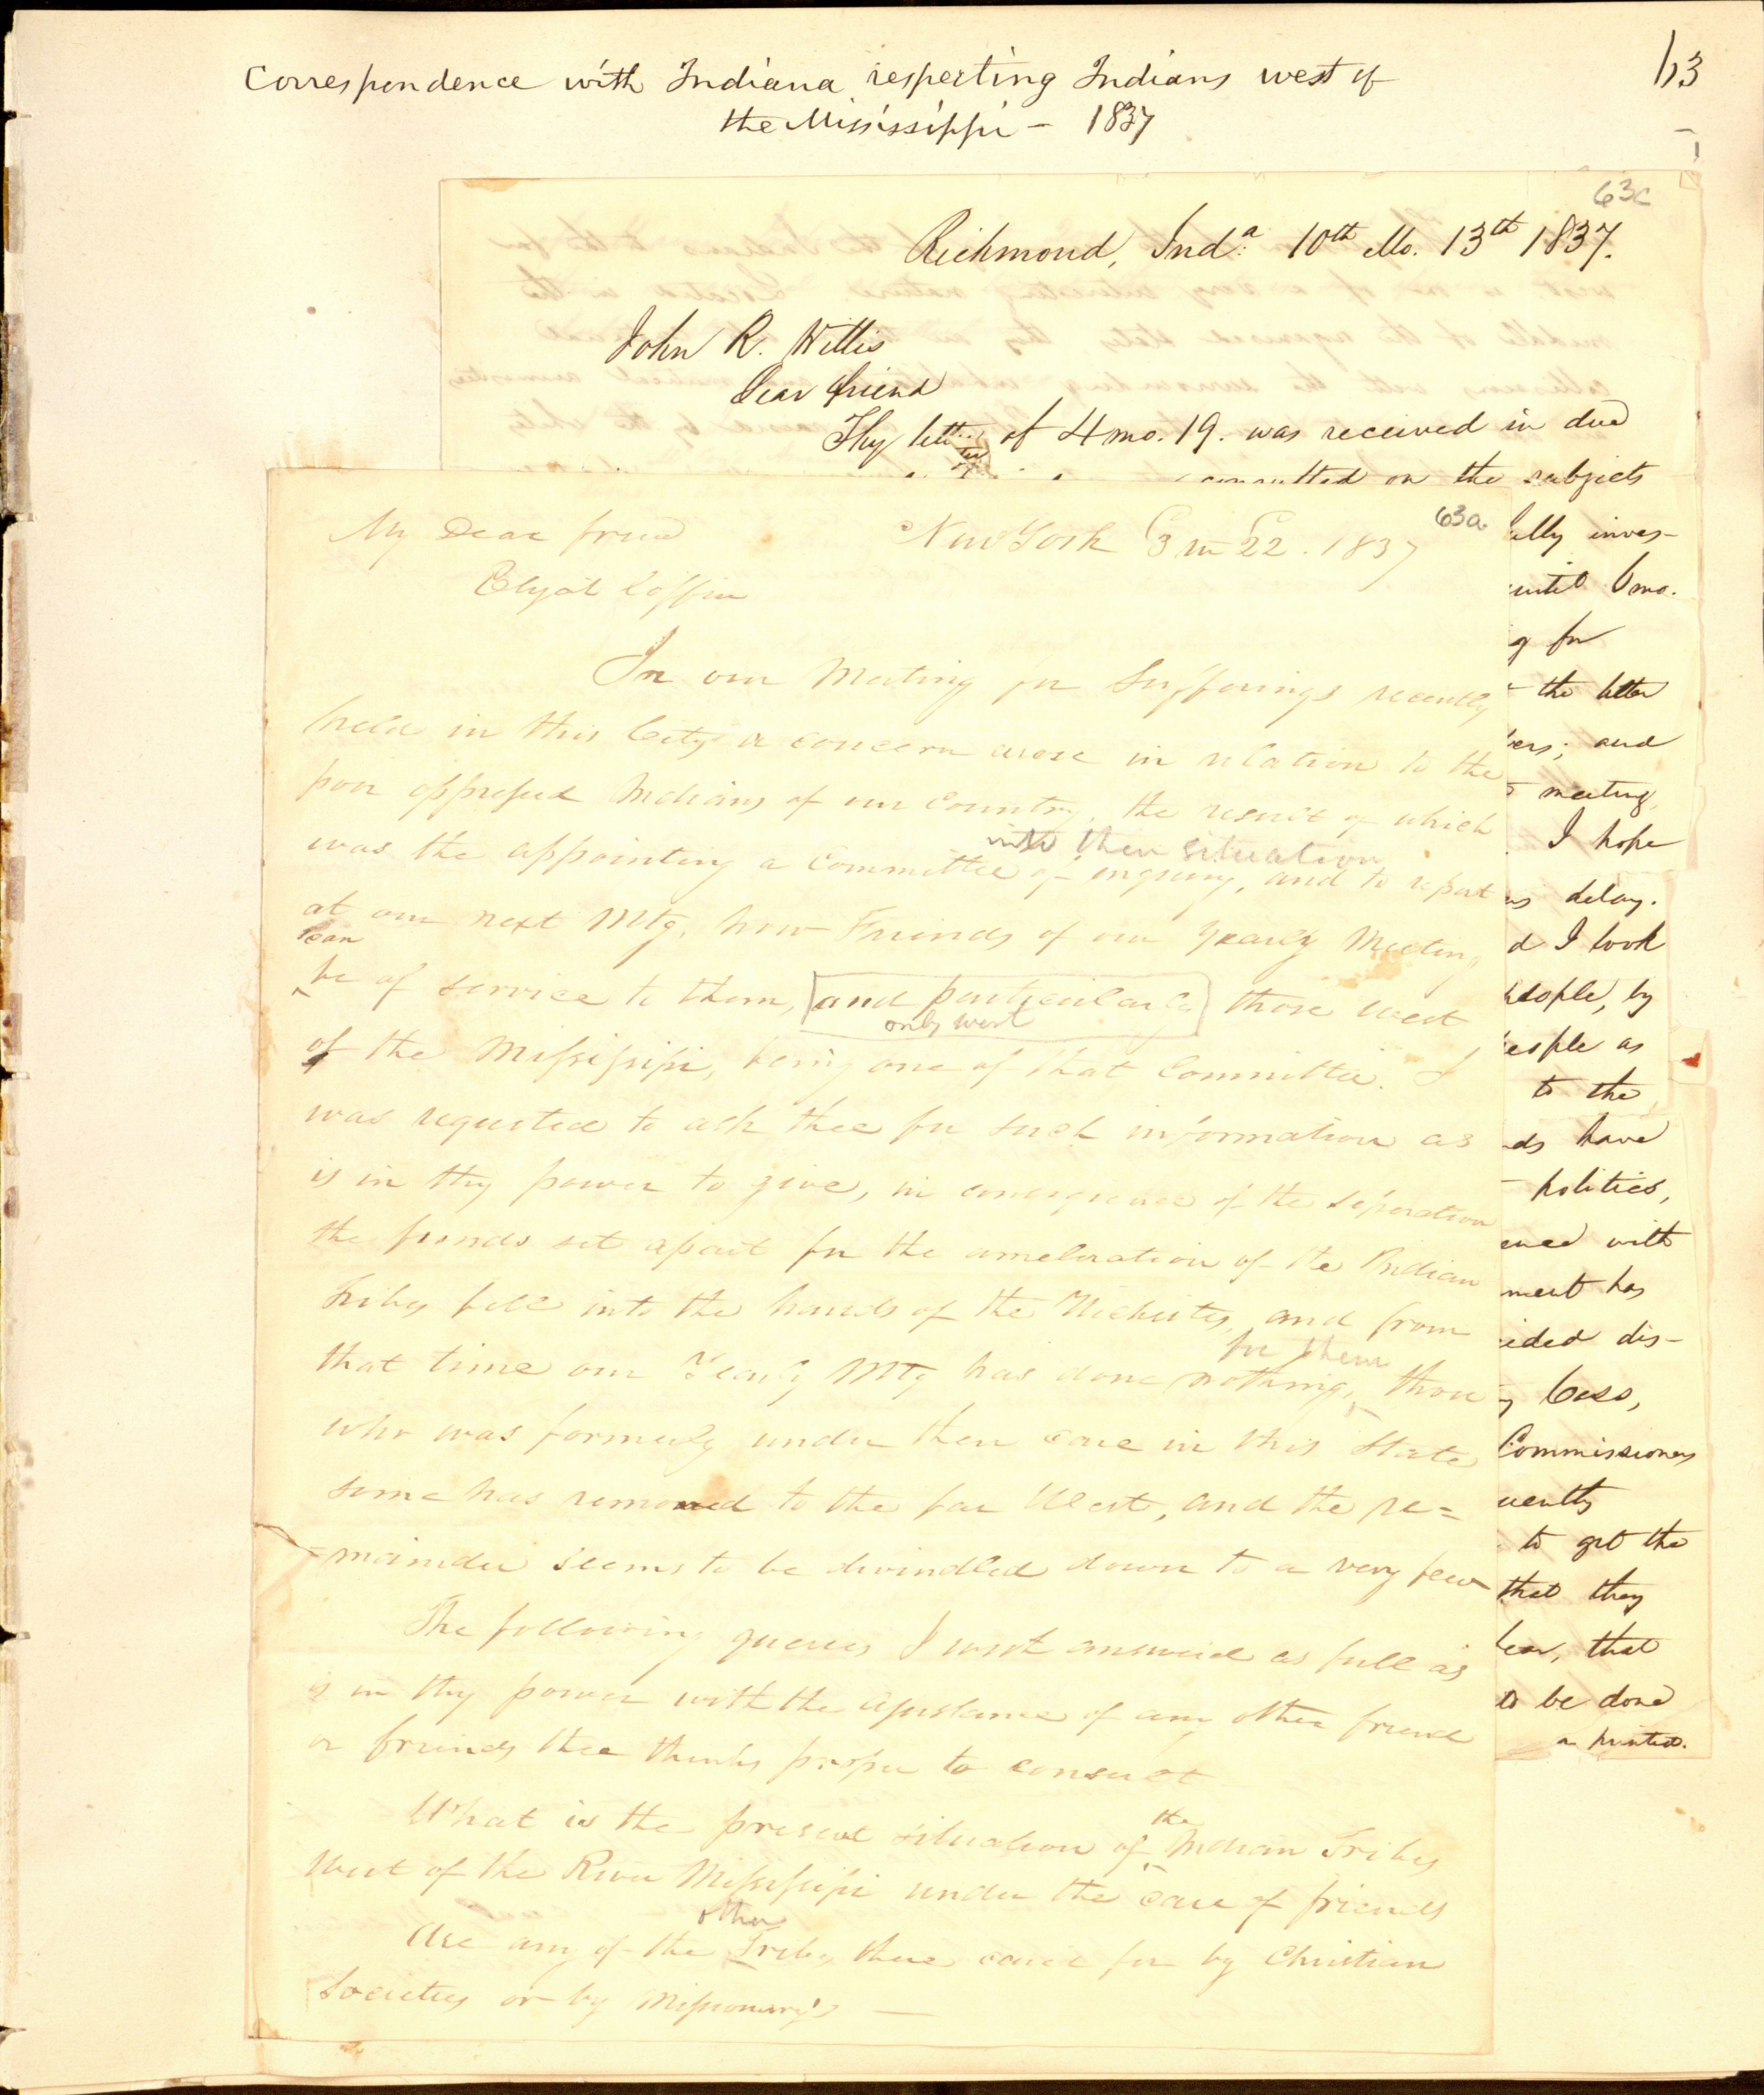 Correspondence with Indiana respecting Indians west of
the Mississippi - 1837
63
63c
Richmond, Ind.a 10th Mo. 13th 1837.
John R. Willis
Dear friend
Thy letter of 4 mo. 19. was received in due
committed on the subjects
ally inves-
until 6 mo.
g for
the letter
bers; and
meeting,
I hope
us delay.
d I look
people, by
people as
to the
nds have
politics,
enced with
ment has
ided dis-
y Cass,
Commissioners
uently
to get the
that they
hear, that
to be done
a printed.
63a
My Dear friend
New York 3 m 22. 1837
Elijah Coffin
In our Meeting for Sufferings recently
held in this City a concern arose in relation to the
poor oppressed Indians of our Country, the result of which
into their situation
was the appointing a Committee of inquiry, and to report
at our next Mtg. how Friends of our Yearly Meeting
can
be of service to them, and particularly those west
only west
of the Missisipi, being one of that Committee. I
was requested to ask thee for such information as
is in thy power to give, in consequence of the Seperation
the funds set apart for the ameloration of the Indian
Tribes fell into the hands of the Hicksites, and from
for them
that time our Yearly Mtg has done nothing, those
who was formerly under their care in this State
some has removed to the far West, and the re=
=mainder seems to be dwindled down to a very few
The following queries I wish answered as full as
is in thy power with the assistance of any other friend
or friends thee thinks proper to consult
What is the present situation of the Indian Tribes
West of the River Missisipi under the care of friends
other
Are any of the Tribes there cared for by Christian
Societies or by Missionary's —